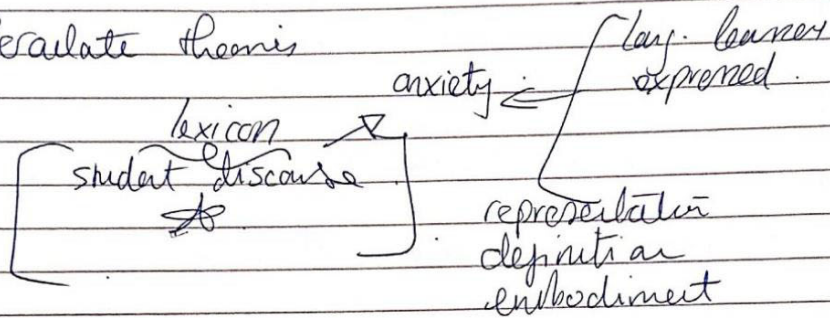 theories
lang. learner
expressed.
anxiety
lexicon
student discourse
representation
definition
embodiment